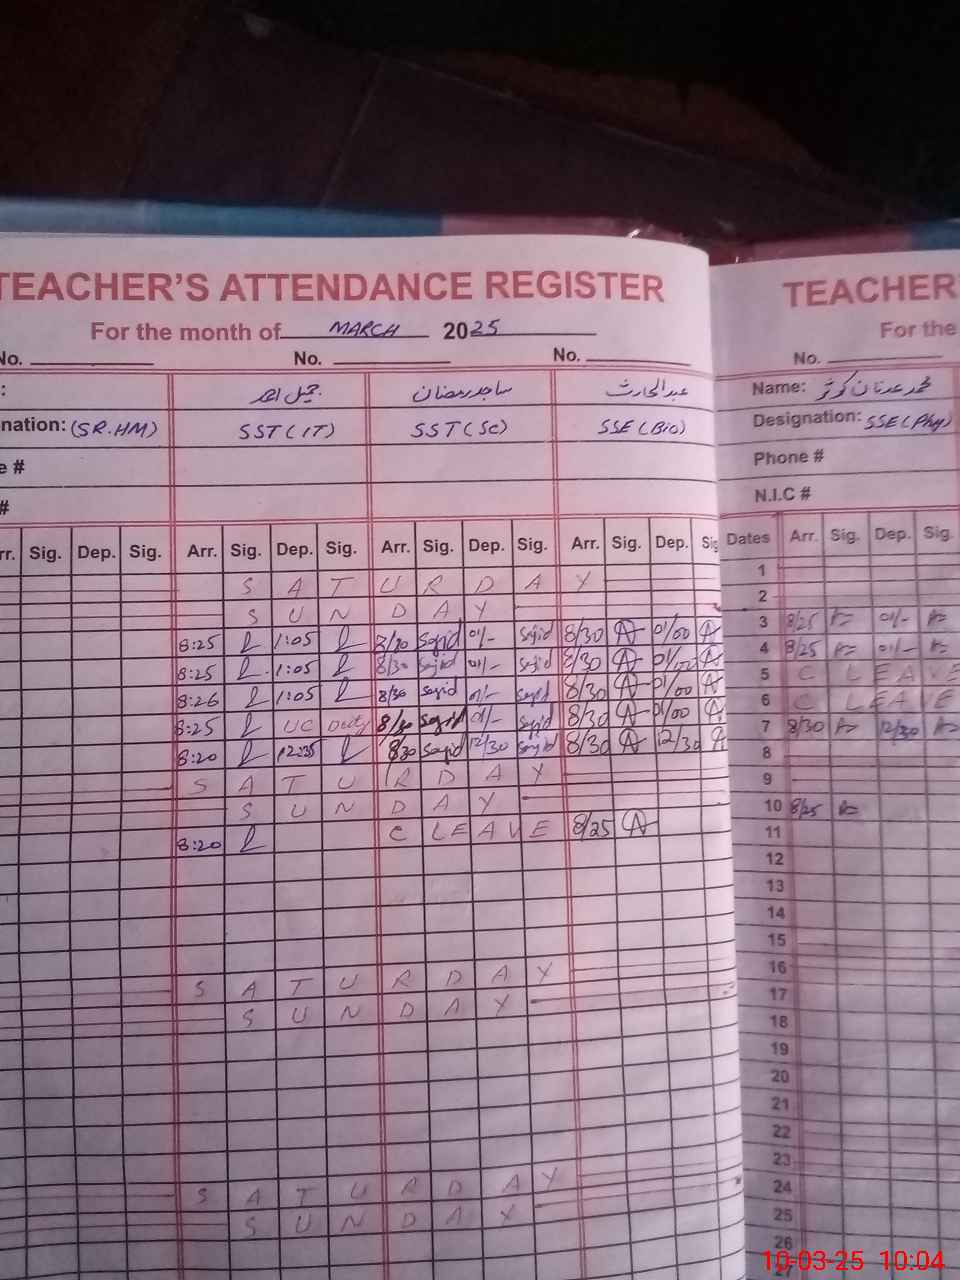 TEACHER'S ATTENDANCE REGISTER
For the month of MARCH 2025
No. No. No.
جمیل احمد ساجد رمضان عبدالحارث
nation: (SR.HM) SST (IT) SST (Sc) SSE (Bio)
e #
#
rr. Sig. Dep. Sig. Arr. Sig. Dep. Sig. Arr. Sig. Dep. Sig. Arr. Sig. Dep. Sig
S A T U R D A Y
S U N D A Y
8:25 1:05 8/30 Sajid 01/- Sajid 8/30 01/00
8:25 1:05 8/30 Sajid 01/- Sajid 8/30 01/00
8:26 1:05 8/30 Sajid 01/- Sajid 8/30 01/00
8:25 UC Duty 8/30 Sajid 01/- Sajid 8/30 01/00
8:20 12:35 8/30 Sajid 12/30 Sajid 8/30 12/30
S A T U R D A Y
S U N D A Y
8:20 C LEAVE 8/25
S A T U R D A Y
S U N D A Y
S A T U R D A Y
S U N D A Y
TEACHER'
For the
No.
Name: محمد عدنان کوثر
Designation: SSE (Phy)
Phone #
N.I.C #
Dates Arr. Sig. Dep. Sig.
1
2
3 8/25 01/-
4 8/25 01/-
5 C LEAVE
6 C LEAVE
7 8/30 12/30
8
9
10 8/25
11
12
13
14
15
16
17
18
19
20
21
22
23
24
25
26
27
10-03-25 10:04